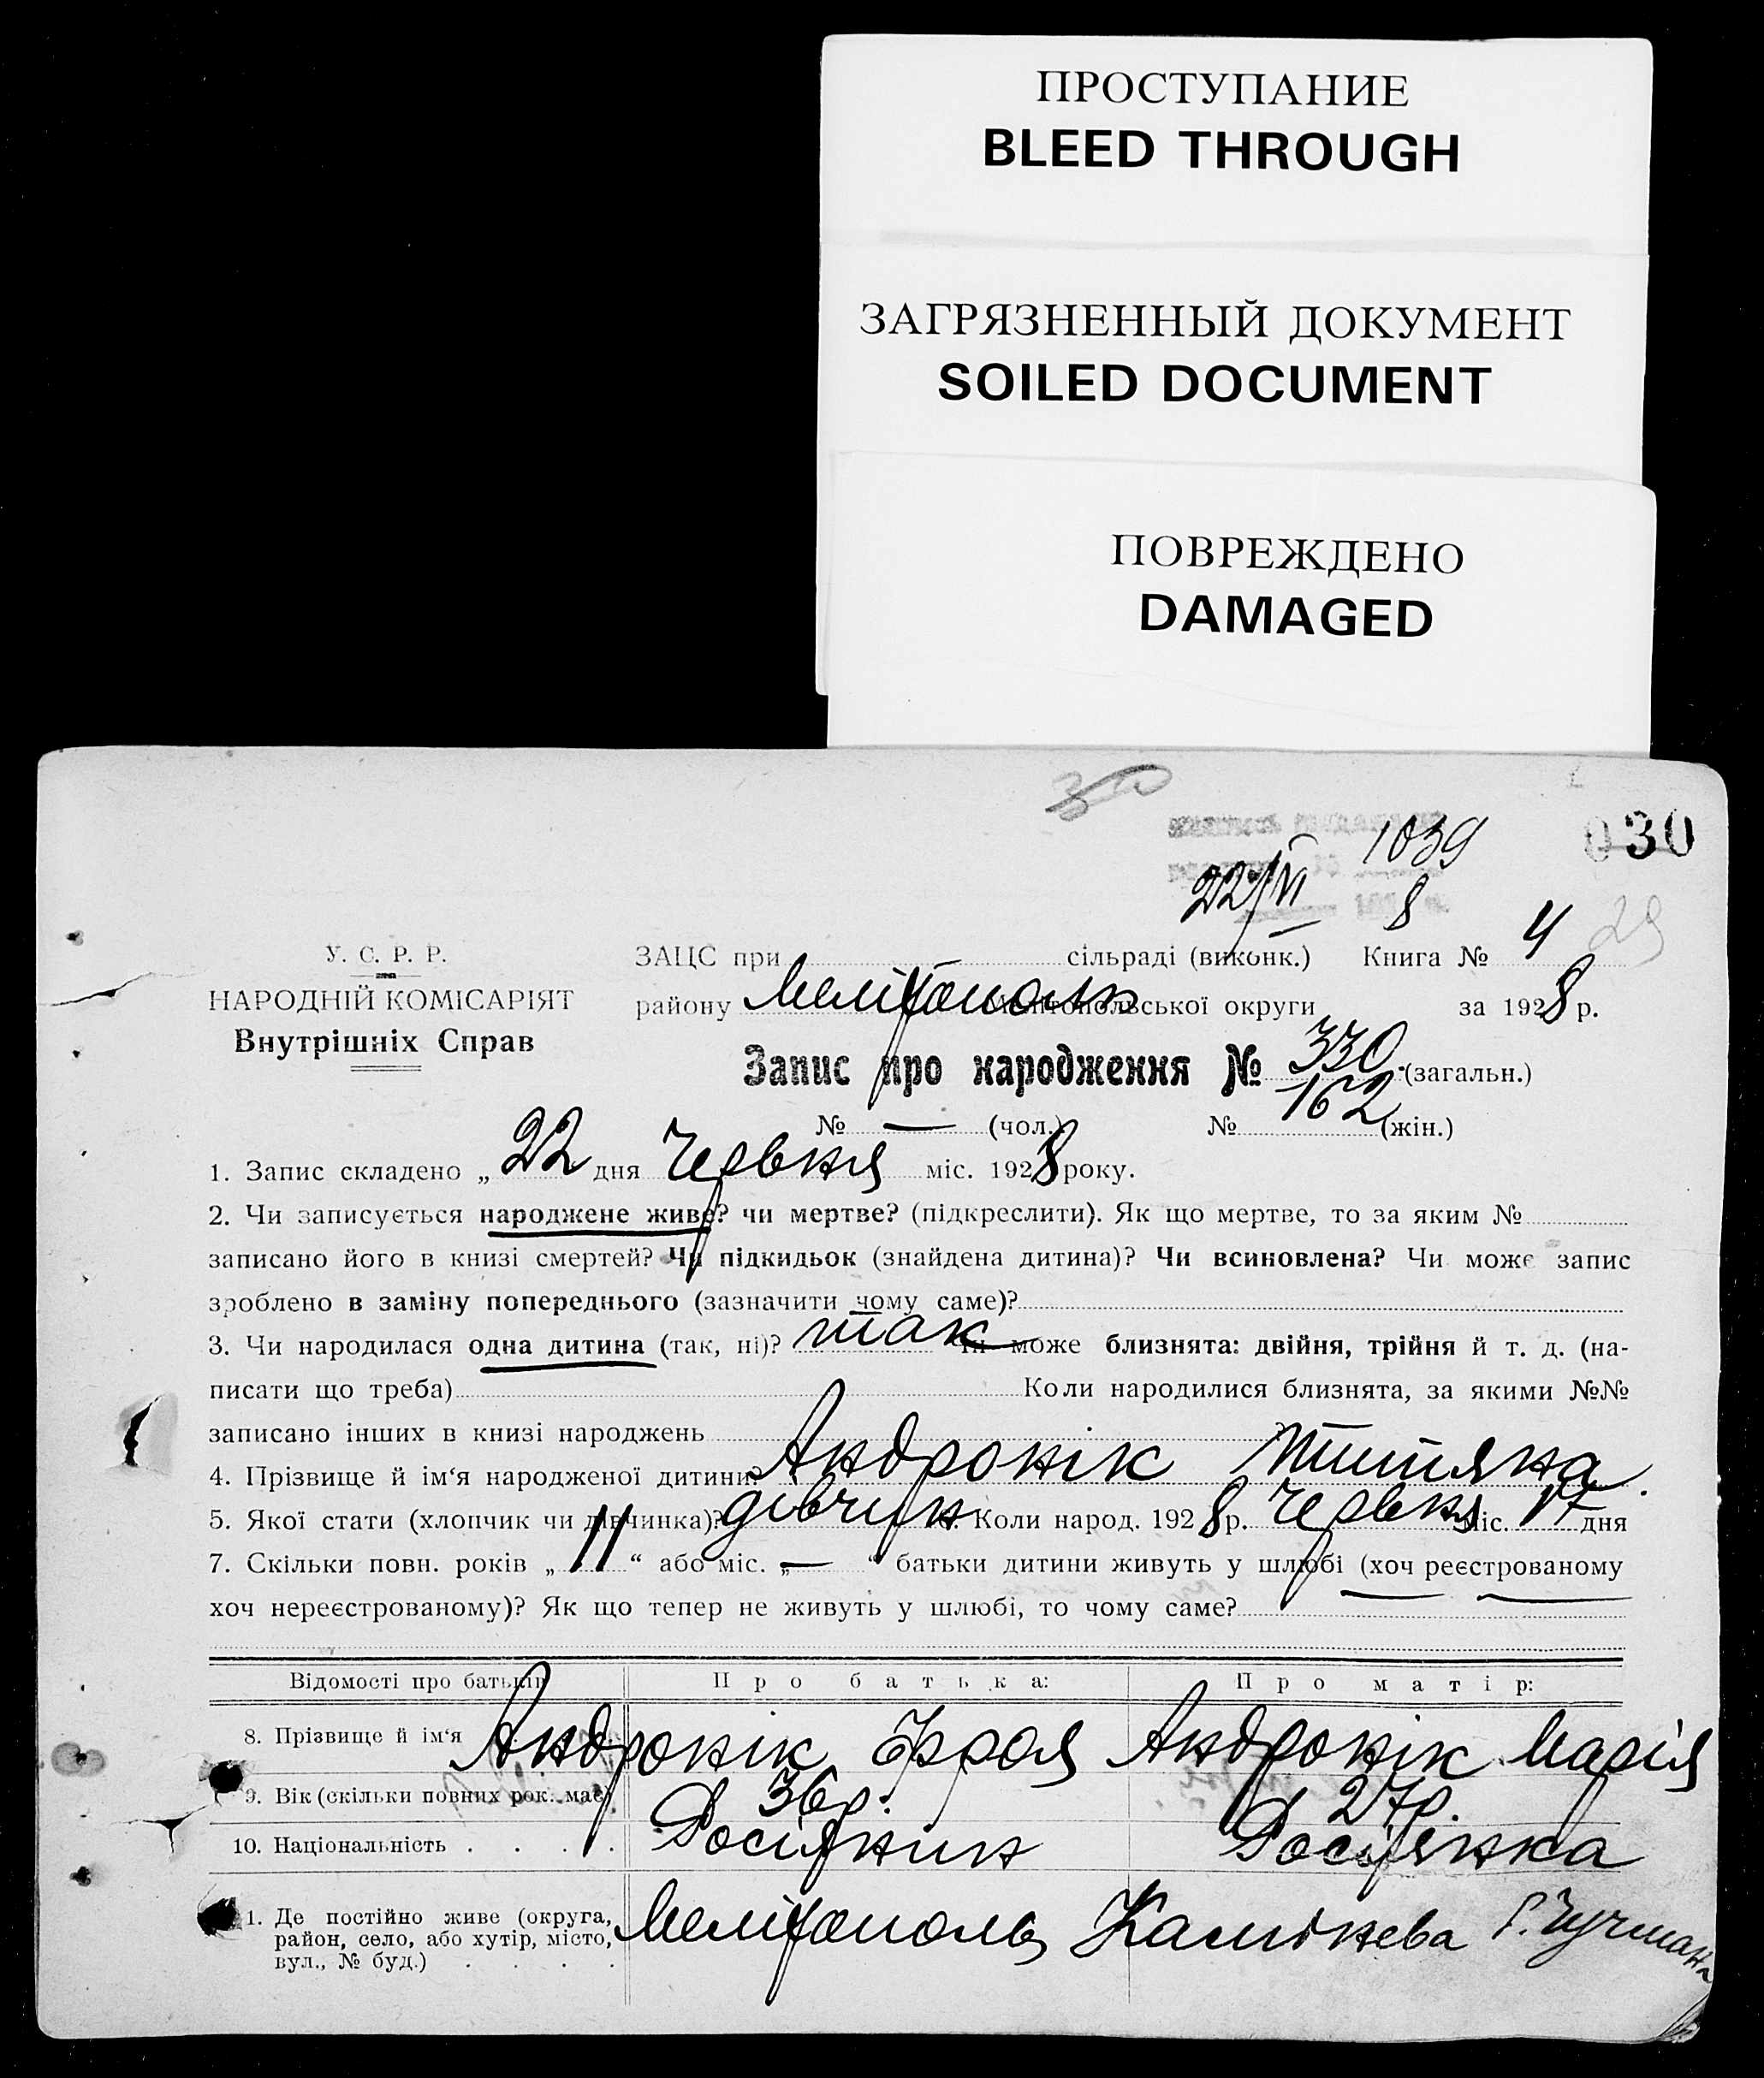 ПРОСТУПАНИЕ
BLEED THROUGH
ЗАГРЯЗНЕННЫЙ ДОКУМЕНТ
SOILED DOCUMENT
ПОВРЕЖДЕНО
DAMAGED
30
1039
030
22/VI 8
29
У. С. Р. Р.
НАРОДНІЙ КОМІСАРІЯТ
Внутрішніх Справ
ЗАЦС при сільраді (виконк.) Книга № 4
району Мелітополь Мелітопольської округи за 1928 р.
Запис про народження № 330. (загальн.)
№ — (чол.) № 162 (жін.)
1. Запис складено „ 22 дня Червня міс. 1928 року.
2. Чи записується народжене живе? чи мертве? (підкреслити). Як що мертве, то за яким №
записано його в книзі смертей? Чи підкидьок (знайдена дитина)? Чи всиновлена? Чи може запис
зроблено в заміну попереднього (зазначити чому саме)?
3. Чи народилася одна дитина (так, ні)? так Чи може близнята: двійня, трійня й т. д. (на-
писати що треба) Коли народилися близнята, за якими №№
записано інших в книзі народжень ?
4. Прізвище й ім‘я народженої дитини? Андронік Титяна
5. Якої стати (хлопчик чи дівчинка)? дівчин 6. Коли народ. 1928 р. Червня міс. 17 дня
7. Скільки повн. років „ 11 “ або міс. „ — “ батьки дитини живуть у шлюбі (хоч реєстрованому
хоч нереєстрованому)? Як що тепер не живуть у шлюбі, то чому саме?
Відомості про батьків Про батька: Про матір:
8. Прізвище й ім‘я Андронік Фрол Андронік Марія
9. Вік (скільки повних рок. має) 36р. 27р.
10. Національність . . . . Росіянин Росіянка
11. Де постійно живе (округа,
район, село, або хутір, місто,
вул., № буд.) . . . .
Мелітополь Камінева